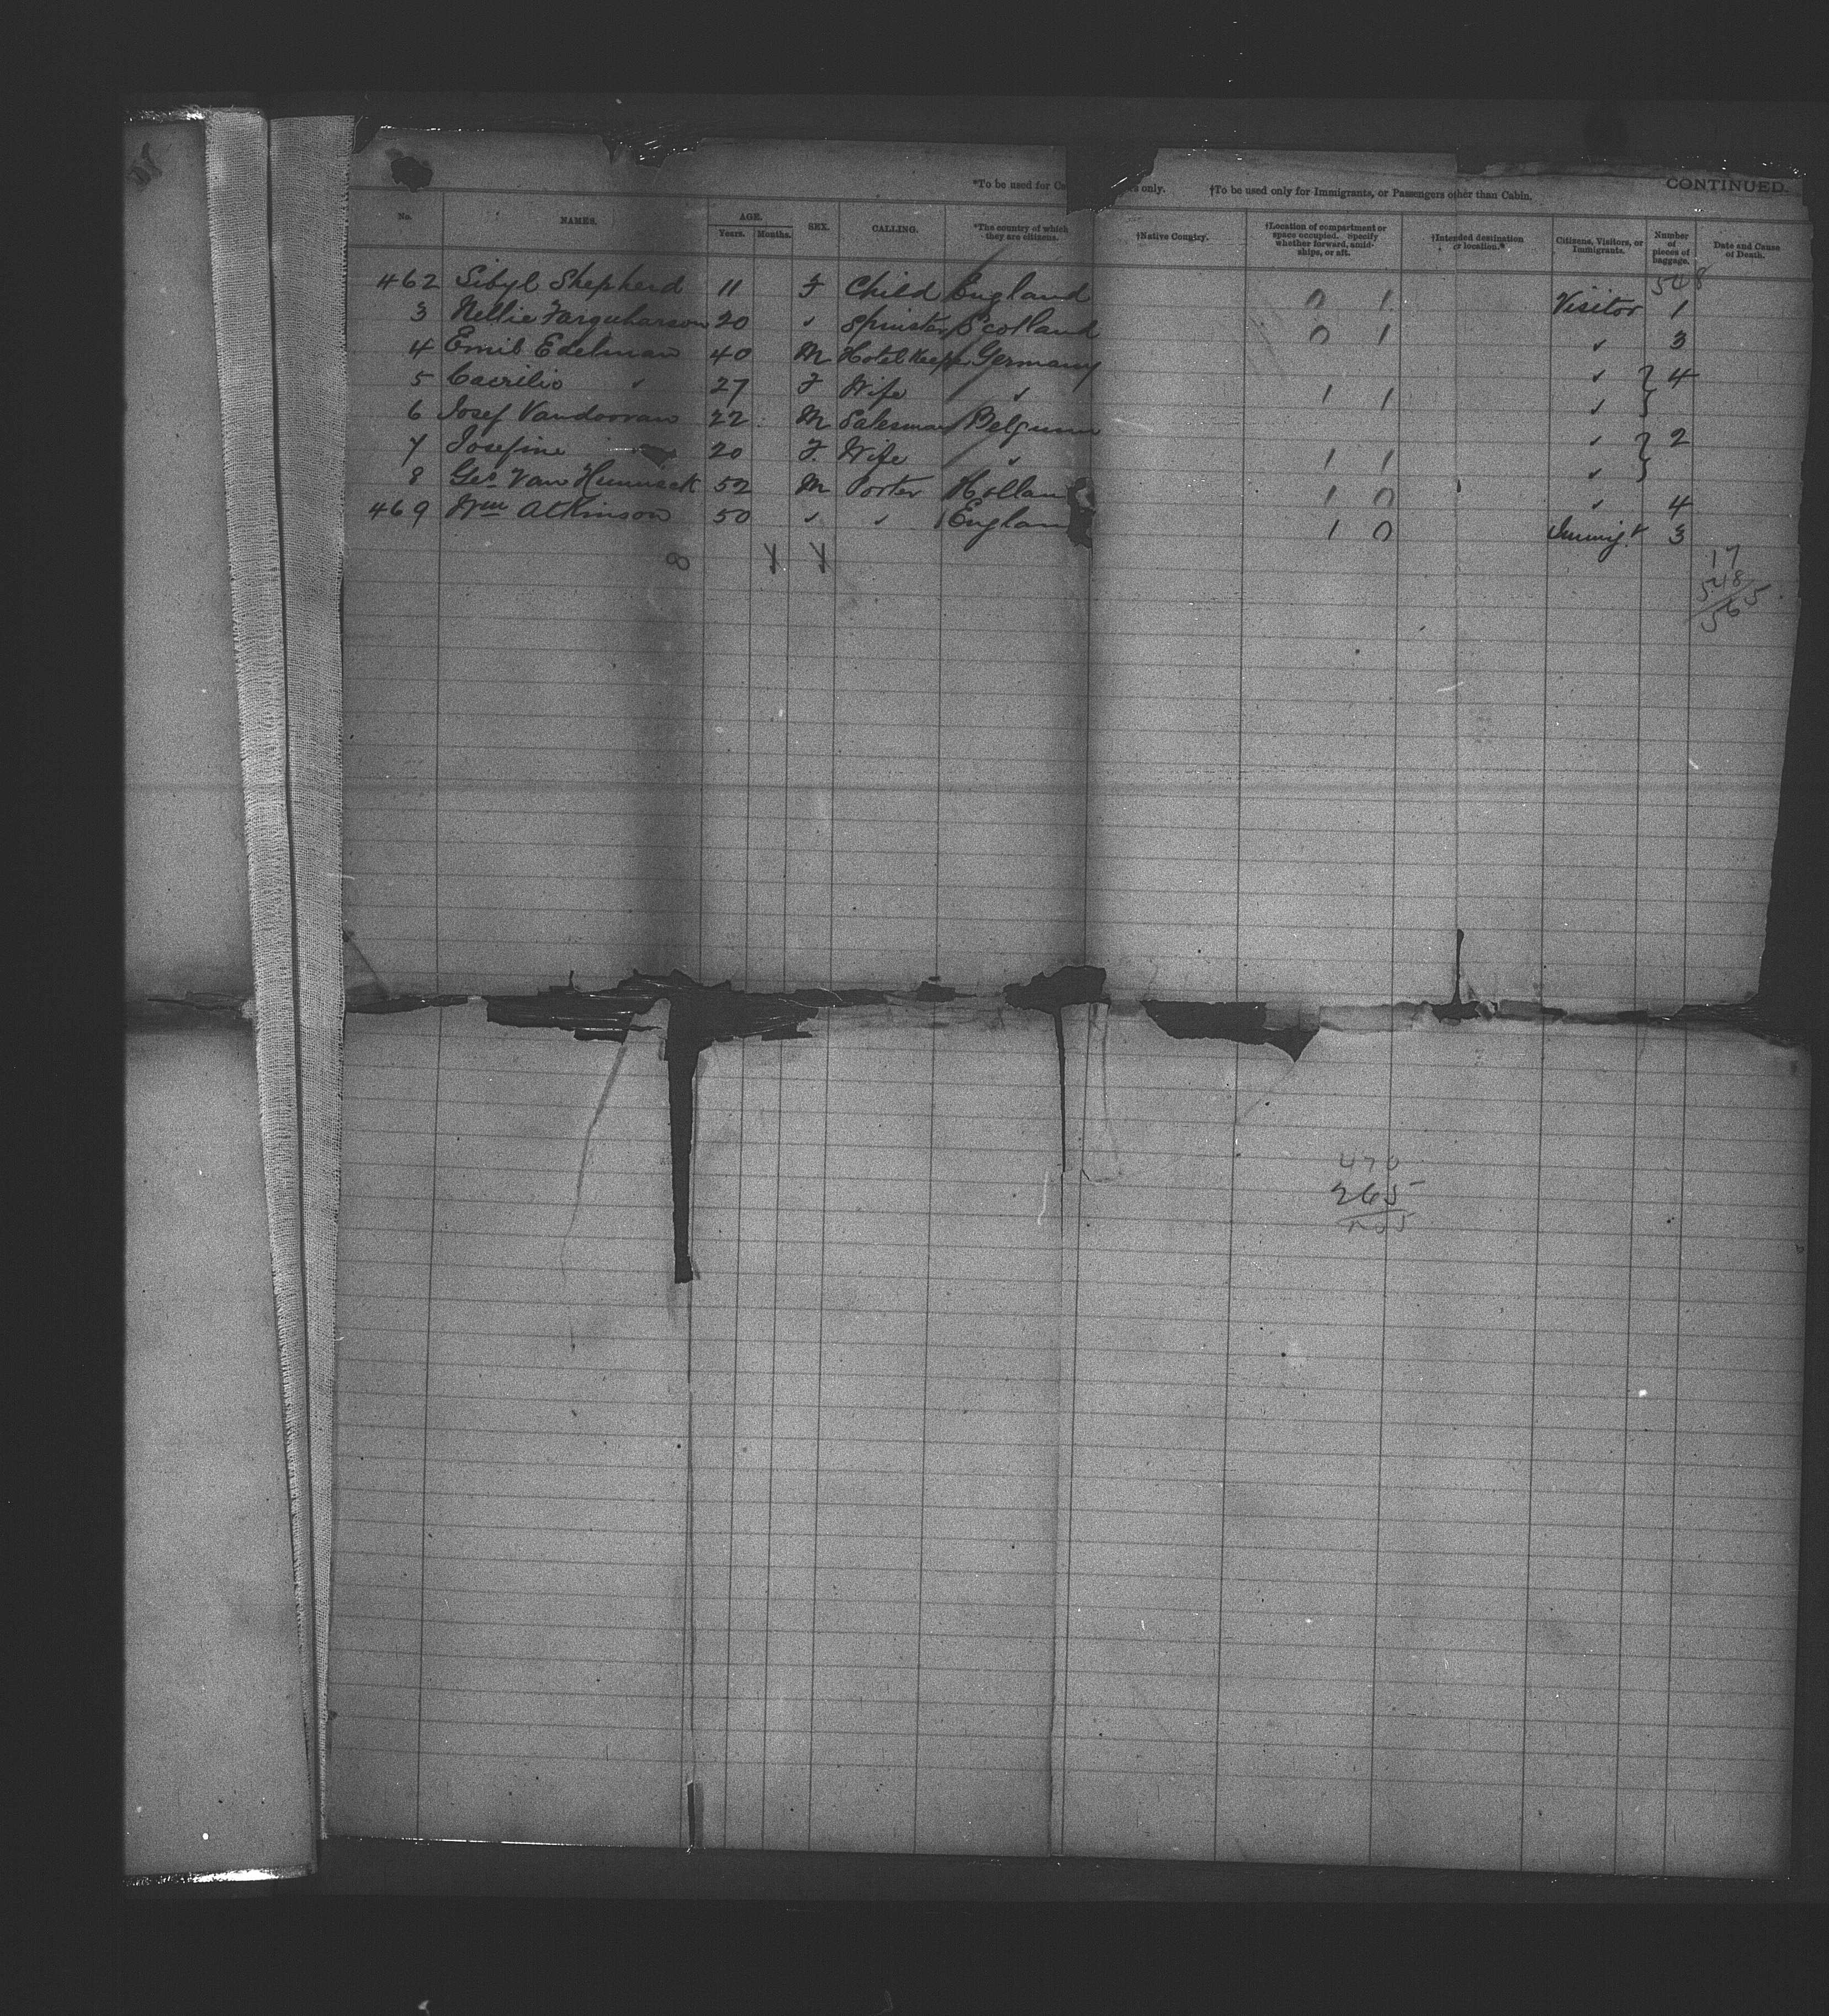 CONTINUED.
*To be used for Ca s only. †To be used only for Immigrants, or Passengers other than Cabin.
No. NAMES. AGE. Years. Months. SEX. CALLING. *The country of which they are citizens. †Native Country. †Location of compartment or space occupied. Specify whether forward, amid-ships, or aft. †Intended destination or location.* Citizens, Visitors, or Immigrants. Number of pieces of baggage. Date and Cause of Death.
548
462 Sibyl Shepherd 11 F Child England 0 1 Visitor 1
3 Nellie Farquharson 20 " Spinster Scotland 0 1 " 3
4 Emil Edelman 40 M Hotel Keepr Germany " 4
5 " 27 F Wife " 1 1 "
6 Josef Vandooran 22 M Salesman Belgium " 2
7 Josefine 20 F. Wife " 1 1 "
8 Geo. Van 52 M Porter Hollan 1 0 " 4
469 Wm Atkinson 50 " " England 1 0 Immigt 3
8 17
548
565
470
265
205